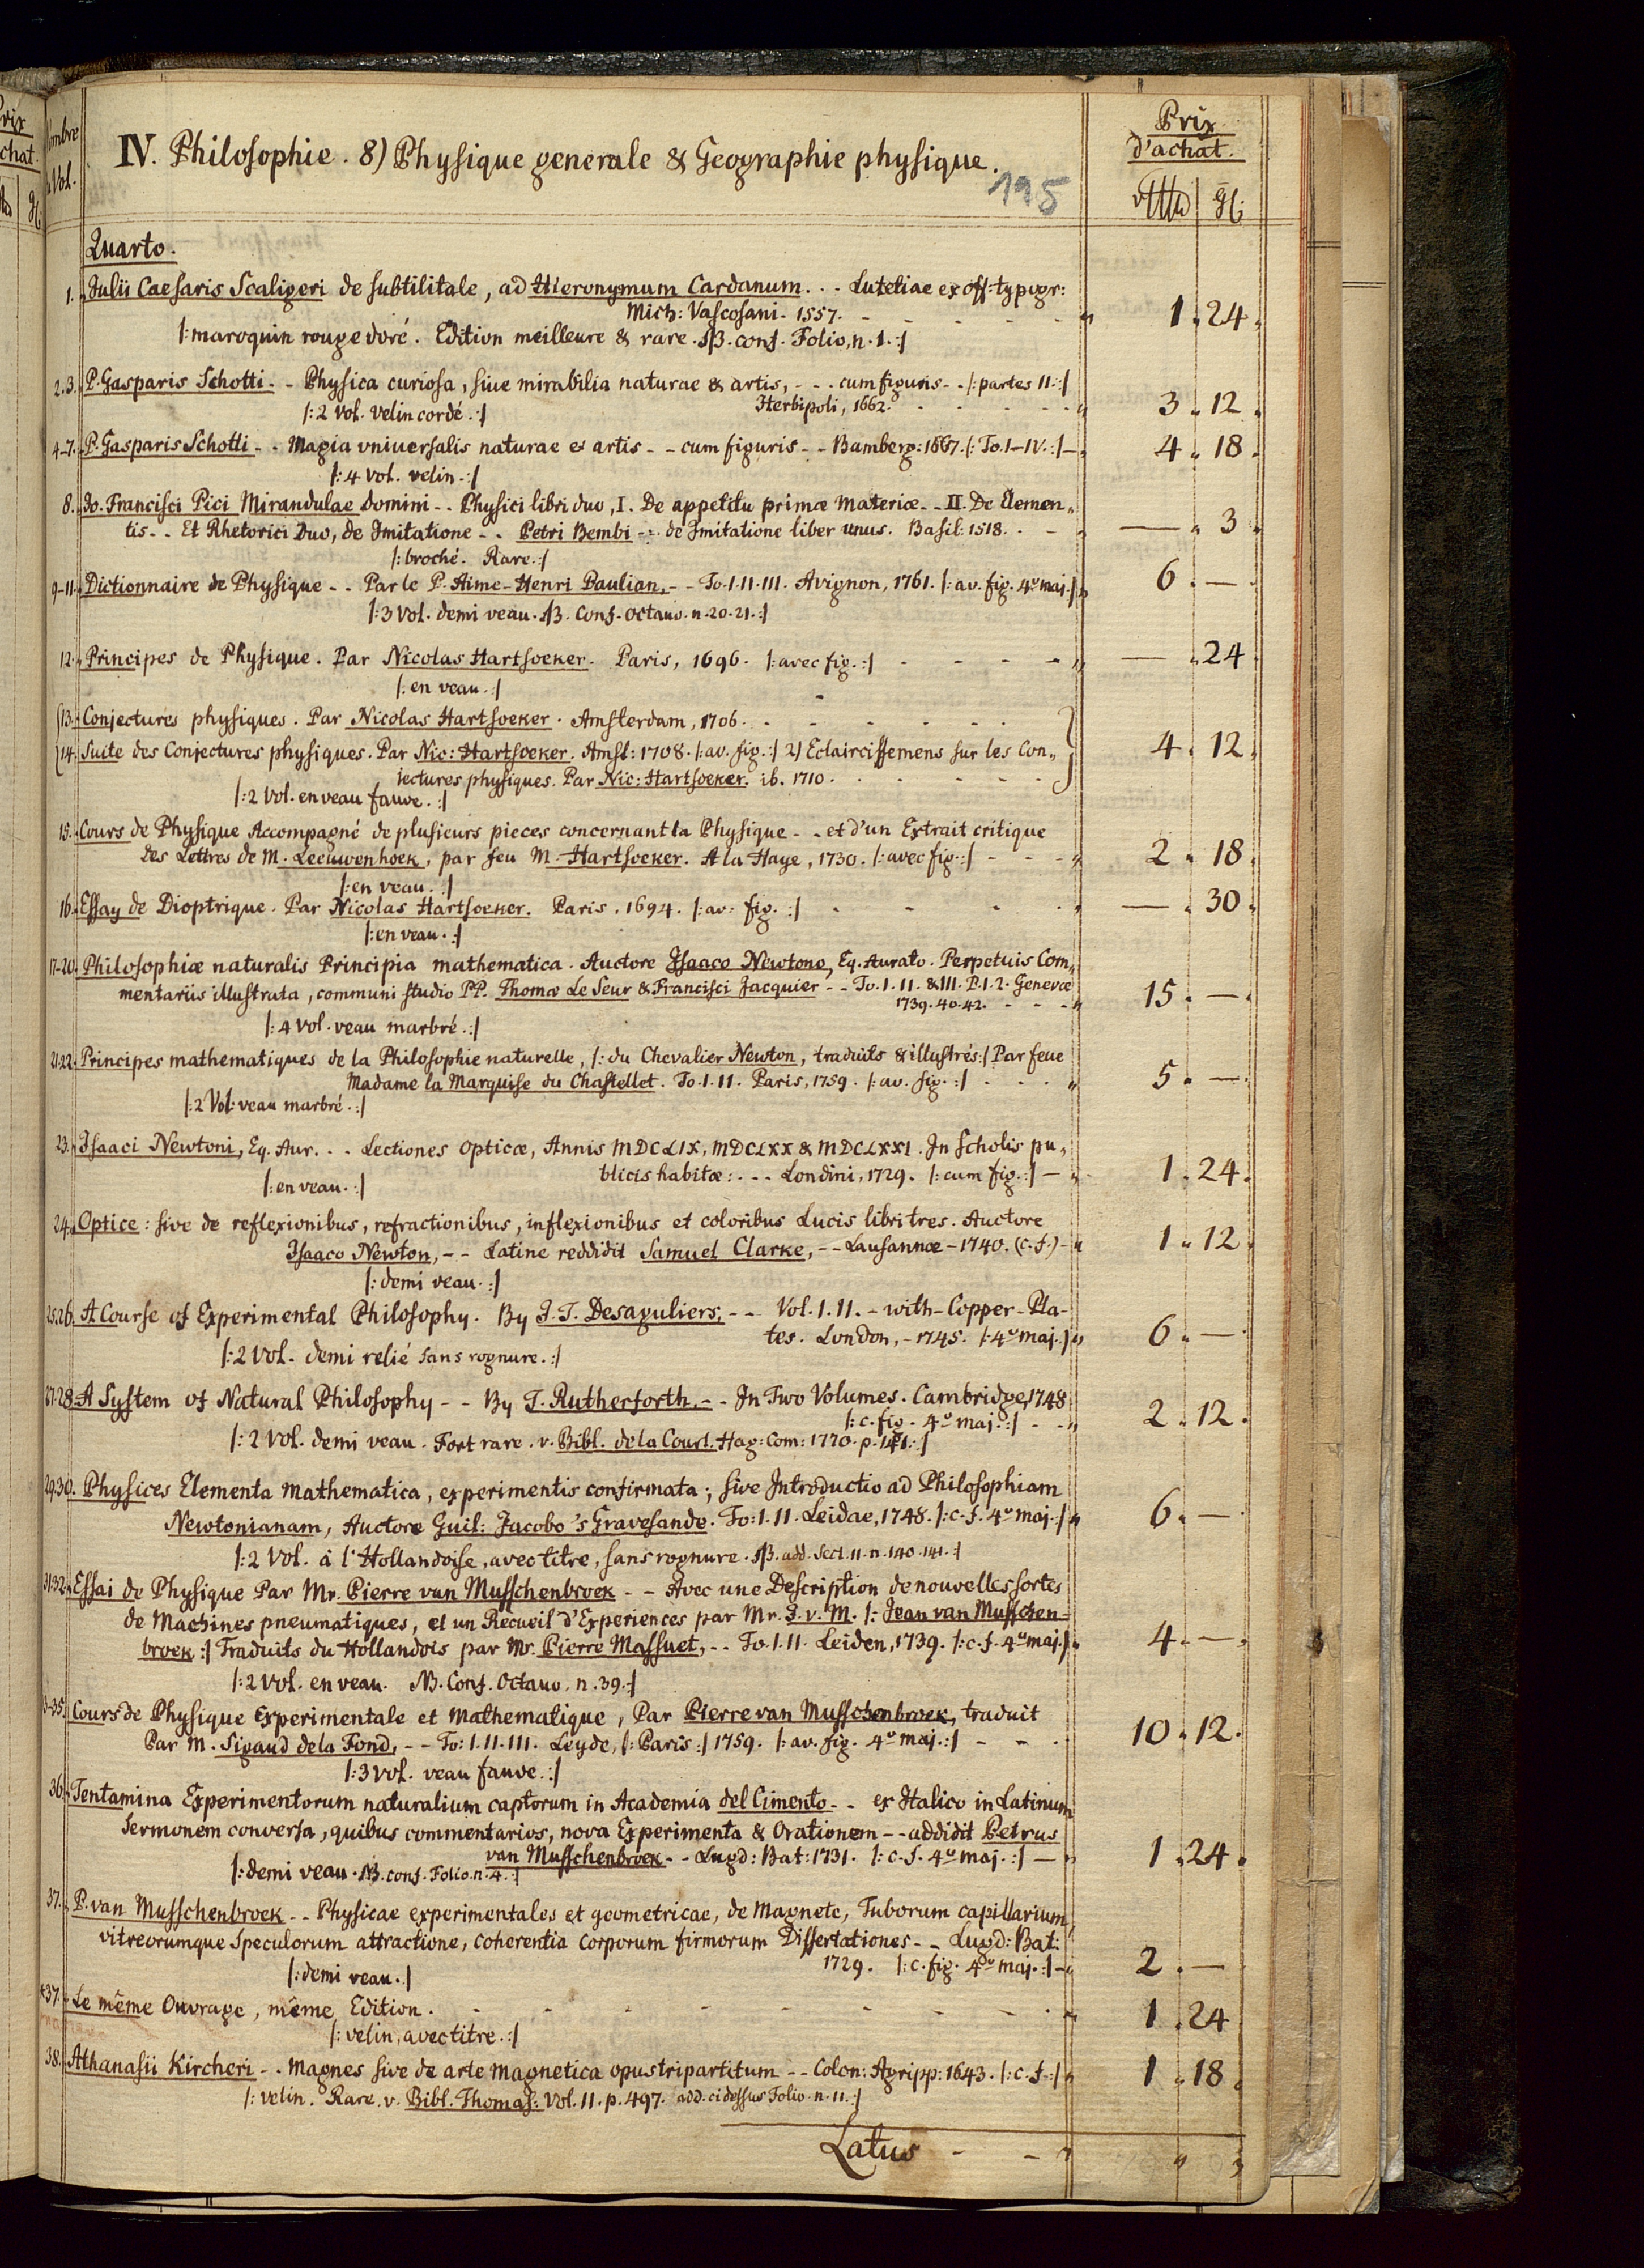 IV. Philosophie. 8) Physique generale & Geographie physique.
195
Prix
d'achat.
Vol.
Quarto.
1. Julii Caesaris Scaligeri de subtilitate, ad Hieronymum Cardanum. . . Lutetiae ex off: typogr:
Mich: Vascosani. 1557. 1. 24.
|: maroquin rouge doré. Edition meilleure & rare. NB. conf. Folio, n. 1. :|
2.3. P. Gasparis Schotti - - Physica curiosa, sive mirabilia naturae & artis, - - - cum figuris - - |: partes II. :|
|: 2 Vol. velin cordé. :| Herbipoli, 1662. 3. 12.
4-7. P. Gasparis Schotti - - Magia vniuersalis naturae et artis - - cum figuris - - Bamberg: 1667. |: To. I-IV. :| 4. 18.
|: 4 vol. velin. :|
8. Jo. Francisci Pici Mirandulae domini - - Physici libri duo, I. De appetitu primæ materiæ - - II. De Elemen„
tis - - Et Rhetorici Duo, de Imitatione - - Petri Bembi - - de Imitatione liber unus. Basil: 1518. — 3.
|: broché. Rare. :|
9-11. Dictionnaire de Physique - - Par le P. Aime-Henri Paulian, - - To. I. II. III. Avignon, 1761. |: av. fig. 4º maj. :| 6. —
|: 3 Vol. demi veau. NB. Conf. Octavo. n. 20. 21. :|
12. Principes de Physique. Par Nicolas Hartsoeker. Paris, 1696. |: avec fig. :| — 24.
|: en veau. :|
13. Conjectures physiques. Par Nicolas Hartsoeker. Amsterdam, 1706.
14. Suite des Conjectures physiques. Par Nic: Hartsoeker. Amst: 1708. |: av. fig. :| 2) Eclaircissemens sur les Con„ 4. 12.
iectures physiques. Par Nic: Hartsoeker. ib. 1710.
|: 2 Vol. en veau fauve. :|
15. Cours de Physique Accompagné de plusieurs pieces concernant la Physique - - et d'un Extrait critique
des Lettres de M. Leeuwenhoek, par feu M. Hartsoeker. A la Haye, 1730. |: avec fig. :| 2. 18.
|: en veau. :|
16. Essay de Dioptrique. Par Nicolas Hartsoeker. Paris. 1694. |: av. fig. :| — 30.
|: en veau. :|
17-20. Philosophiæ naturalis Principia mathematica. Auctore Isaaco Newtono, Eq. Aurato. Perpetuis Com„
mentariis illustrata, communi studio PP. Thomæ Le Seur & Francisci Jacquier - - To. I. II. & III. P. 1. 2. Genevæ
1739. 40. 42. 15. —
|: 4 Vol. veau marbré. :|
21.22. Principes mathematiques de la Philosophie naturelle, |: du Chevalier Newton, traduits & illustrés :| Par feue
Madame la Marquise du Chastellet. To. I. II. Paris, 1759. |: av. fig. :| 5. —
|: 2 Vol. veau marbré. :|
23. Isaaci Newtoni, Eq. Aur. . . Lectiones Opticæ, Annis MDCLIX, MDCLXX & MDCLXXI. In Scholis pu„
blicis habitæ: . . . Londini, 1729. |: cum fig. :| 1. 24.
|: en veau. :|
24. Optice: sive de reflexionibus, refractionibus, inflexionibus et coloribus Lucis libri tres. Auctore
Isaaco Newton, - - Latine reddidit Samuel Clarke, - - Lausannæ - 1740. (c. f.) 1. 12.
|: demi veau. :|
25.26. A Course of Experimental Philosophy. By J. T. Desaguliers, - - Vol. I. II. - with - Copper-Pla-
tes. London, - 1745. |: 4º maj. :| 6. —
|: 2 Vol. demi relié sans rognure. :|
27.28. A System of Natural Philosophy - - By T. Rutherforth. - - In Two Volumes. Cambridge, 1748
|: c. fig. 4º maj. :| 2. 12.
|: 2 Vol. demi veau. Fort rare. v. Bibl. de la Court. Hag: Com: 1770. p. 141. :|
29.30. Physices Elementa Mathematica, experimentis confirmata; sive Introductio ad Philosophiam
Newtonianam, Auctore Guil: Jacobo 's Gravesande. To: I. II. Leidae, 1748. |: c. f. 4º maj. :| 6. —
|: 2 Vol. à l'Hollandoise, avec titre, sans rognure. NB. add. Sect. II. n. 140. 141. :|
31.32. Essai de Physique Par Mr. Pierre van Musschenbroek - - Avec une Description de nouvelles sortes
de Machines pneumatiques, et un Recueil d'Experiences par Mr. J. v. M. |: Jean van Musschen-
broek :| Traduits du Hollandois par Mr. Pierre Massuet, - - To. I. II. Leiden, 1739. |: c. f. 4º maj. :| 4. —
|: 2 Vol. en veau. NB. Conf. Octavo. n. 39. :|
33-35. Cours de Physique Experimentale et Mathematique, Par Pierre van Musschenbroek, traduit
Par M. Sigaud de la Fond, - - To: I. II. III. Leyde, |: Paris :| 1759. |: av. fig. 4º maj. :| 10. 12.
|: 3 Vol. veau fauve. :|
36. Tentamina Experimentorum naturalium captorum in Academia del Cimento - - ex Italico in Latinum
Sermonem conversa, quibus commentarios, nova Experimenta & Orationem - - addidit Petrus
van Musschenbroek - - Lugd: Bat: 1731. |: c. f. 4º maj. :| 1. 24.
|: demi veau. NB. conf. Folio. n. 4. :|
37. P. van Musschenbroek - - Physicae experimentales et geometricae, de Magnete, Tuborum capillarium,
vitreorumque Speculorum attractione, coherentia corporum firmorum Dissertationes - - Lugd: Bat:
1729. |: c. fig. 4º maj. :| 2. —
|: demi veau. :|
*37. Le même Ouvrage, même Edition. 1. 24
|: velin, avec titre. :|
38. Athanasii Kircheri - - Magnes sive de arte Magnetica opus tripartitum - - Colon: Agripp: 1643. |: c. f. :| 1. 18.
|: velin. Rare. v. Bibl. Thomas: Vol. II. p. 497. add. ci dessus Folio. n. 11. :|
Latus